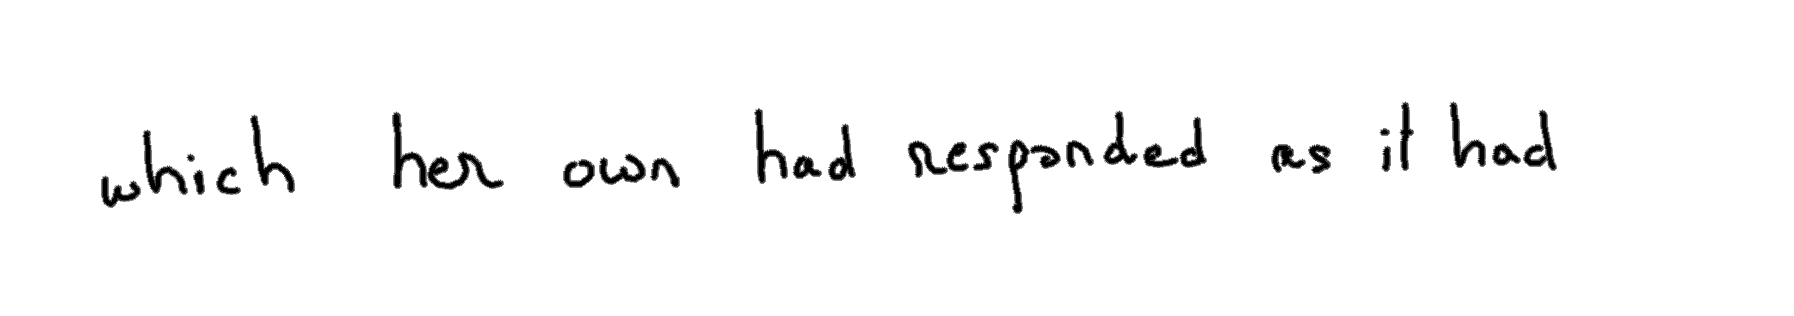 which her own had responded as it had